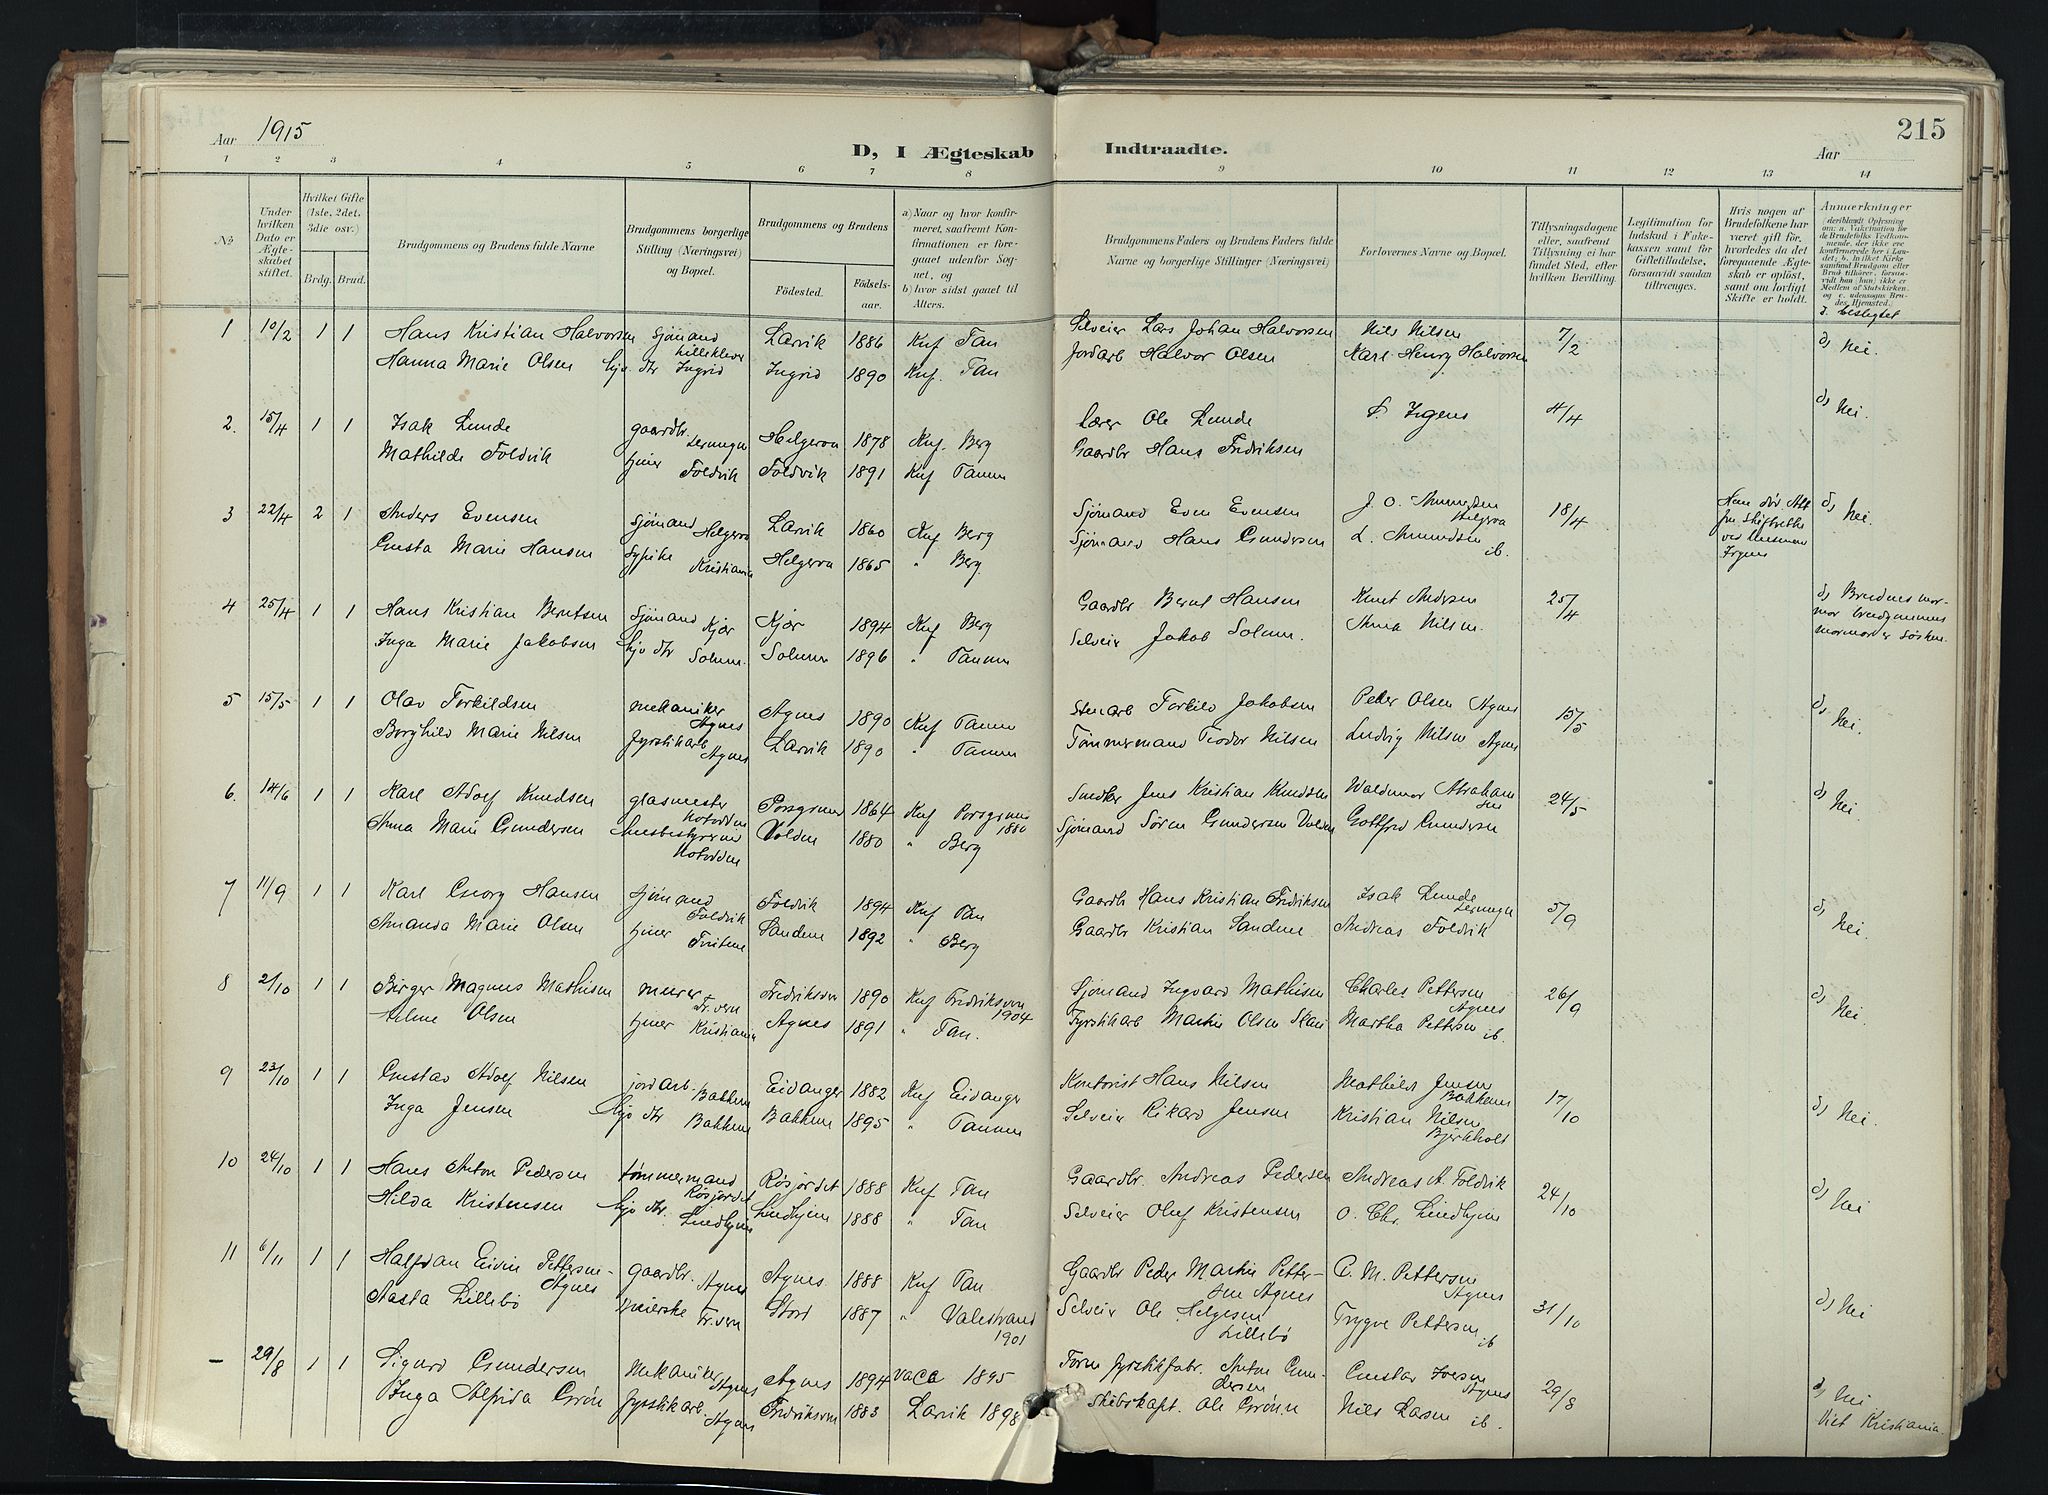 Aar 1915
D, I Ægteskab Indtraadte.
215
Aar
1 2 3 4 5 6 7 8 9 10 11 12 13 14
№
Under hvilken Dato er Ægteskabet stiftet.
Hvilket Gifte (1ste, 2det, 3die osv.)
Brdg. Brud.
Brudgommens og Brudens fulde Navne
Brudgommens borgerlige Stilling (Næringsvei) og Bopæl.
Brudgommens og Brudens
Fødested. Fødselsaar.
a) Naar og hvor konfirmeret, saafremt Konfirmationen er foregaaet udenfor Sognet, og
b) hvor sidst gaaet til Alters.
Brudgommens Faders og Brudens Faders fulde Navne og borgerlige Stillinger (Næringsvei)
Forlovernes Navne og Bopæl.
Tillysningsdagene eller, saafremt Tillysning ei har fundet Sted, efter hvilken Bevilling.
Legitimation for Indskud i Enkekassen samt for Giftetilladelse, forsaavidt saadan tiltrænges.
Hvis nogen af Brudefolkene har været gift før, hvorledes da det foregaaende Ægteskab er opløst, samt om lovligt Skifte er holdt.
Anmærkninger
d. beslegtet
1 10/2 1 1 Hans Kristian Halvorsen Sjømand Lilleklever Larvik 1886 Knf Tan Selveier Lars Johan Halvorsen Nils Nilsen 7/2 d, Nei.
Hanna Marie Olsen hjv. dtr Ingrid Ingrid 1890 Knf. Tan Jordarb Halvor Olsen Karl Henry Halvorsen
2. 15/4 1 1 Isak Lunde gaardbr. Helgeroa 1878 Knf. Berg Lærer Ole Lunde Irgens 4/4 d, Nei.
Mathilde Foldvik tjener Foldvik Foldvik 1891 Knf Tanum Gaardbr Hans Fredriksen
3 22/4 2 1 Anders Evensen Sjømand Helgeroa Larvik 1860 Knf Berg Sjømand Even Evensen J. O. Amundsen Helgeroa 18/4 d, Nei.
Gusta Marie Hansen Sypike Kristiania Helgeroa 1865 " Berg Sjømand Hans Gundersen L. Amundsen ib.
4 25/4 1 1 Hans Kristian Berntsen Sjømand Kjær Kjær 1894 Knf Berg Gaardbr Bernt Hansen Knut Andersen 25/4 d, Brudens mormor brudgommens mormor er søsken.
Inga Marie Jakobsen hjv dtr Solum. Solum 1896 " Tanum Selveier Jakob Solum. Anna Nilsen.
5 15/5 1 1 Olav Torkildsen mekaniker Agnes Agnes 1890 Knf Tanum Stenarb Torkild Jakobsen Peder Olsen Agnes 15/5 d, Nei.
Borghild Marie Nilsen fyrstikarb Agnes Larvik 1890 " Tanum Tømmermand Teodor Nilsen Ludvig Nilsen Agnes
6. 14/6 1 1 Karl Adolf Knudsen glasmester Notodden Porsgrund 1864 Knf Porsgrund 1880 Smedker Jens Kristian Knudsen Waldemar Abrahamsen 24/5 d, Nei.
Anna Marie Gundersen husbestyrerin Notodden Volden 1880 " Berg Sjømand Søren Gundersen Volden Gottfred Gundersen
7 11/9 1 1 Karl Georg Hansen sjømand Foldvik Foldvik 1894 Knf Tan Gaardb Hans Kristian Fredriksen Isak Lunde 5/9 d, Nei.
Amanda Marie Olsen tjener Tvitene Sandene 1892 " Berg Gaardbr Kristian Sandene Andreas Foldvik
8 2/10 1 1 Birger Magnus Mathisen murer Fr.vern Fredriksvern 1890 Knf Fredriksvern 1904 Sjømand Ingvard Mathisen Charles Pettersen Agnes 26/9 d, Nei.
Olsen tjener Kristiania Agnes 1891 " Tan. Fyrstikarb Martin Olsen Skau Martha Pettersen ib.
9 23/10 1 1 Gustav Adolf Nilsen jordarb. Bakken Eidanger 1882 Knf Eidanger Kontorist Hans Nilsen Mathilde Jensen Bakkene 17/10 d, Nei.
Inga Jensen hjv dtr Bakkene Bakkene 1895 " Tanum Selveier Rikard Jensen Kristian Nilsen Bjerkholt
10 24/10 1 1 Hans Anton Pedersen tømmermand Røsjordet Røsjordet 1888 Knf Tan Gaardbr. Andreas Pedersen Andreas A. Foldvik 24/10 d, Nei
Hilda Kristensen hjv dtr. Lindhjem Lindhjem 1888 " Tan Selveier Oluf Kristensen O. Chr. Lindhjem
11 6/11 1 1 Halfdan Eivin Pettersen Agnes gaardbr. Agnes Agnes 1888 Knf Tan Gaardbr Peder Martin Pettersen Agnes P. M. Pettersen Agnes 31/10 d, Nei
Aasta Lillebø meierske Fr.vern Stord 1887 " Valestrand 1901 Selveier Ole Helgesen Lillebø Trygve Pettersen ib
- 29/8 1 1 Sigurd Gundersen Mekaniker Agnes Agnes 1894 vaca 1895 Form fyrstikfabr. Anton Gundersen Gustav Iversen Agnes 29/8 d, Nei
Inga Alfida Grøn fyrstikarb. Agnes Fredriksvern 1883 Larvik 1898 Skibskapt. Ole Grønn Nils Larsen ib. Viet Kristiania.